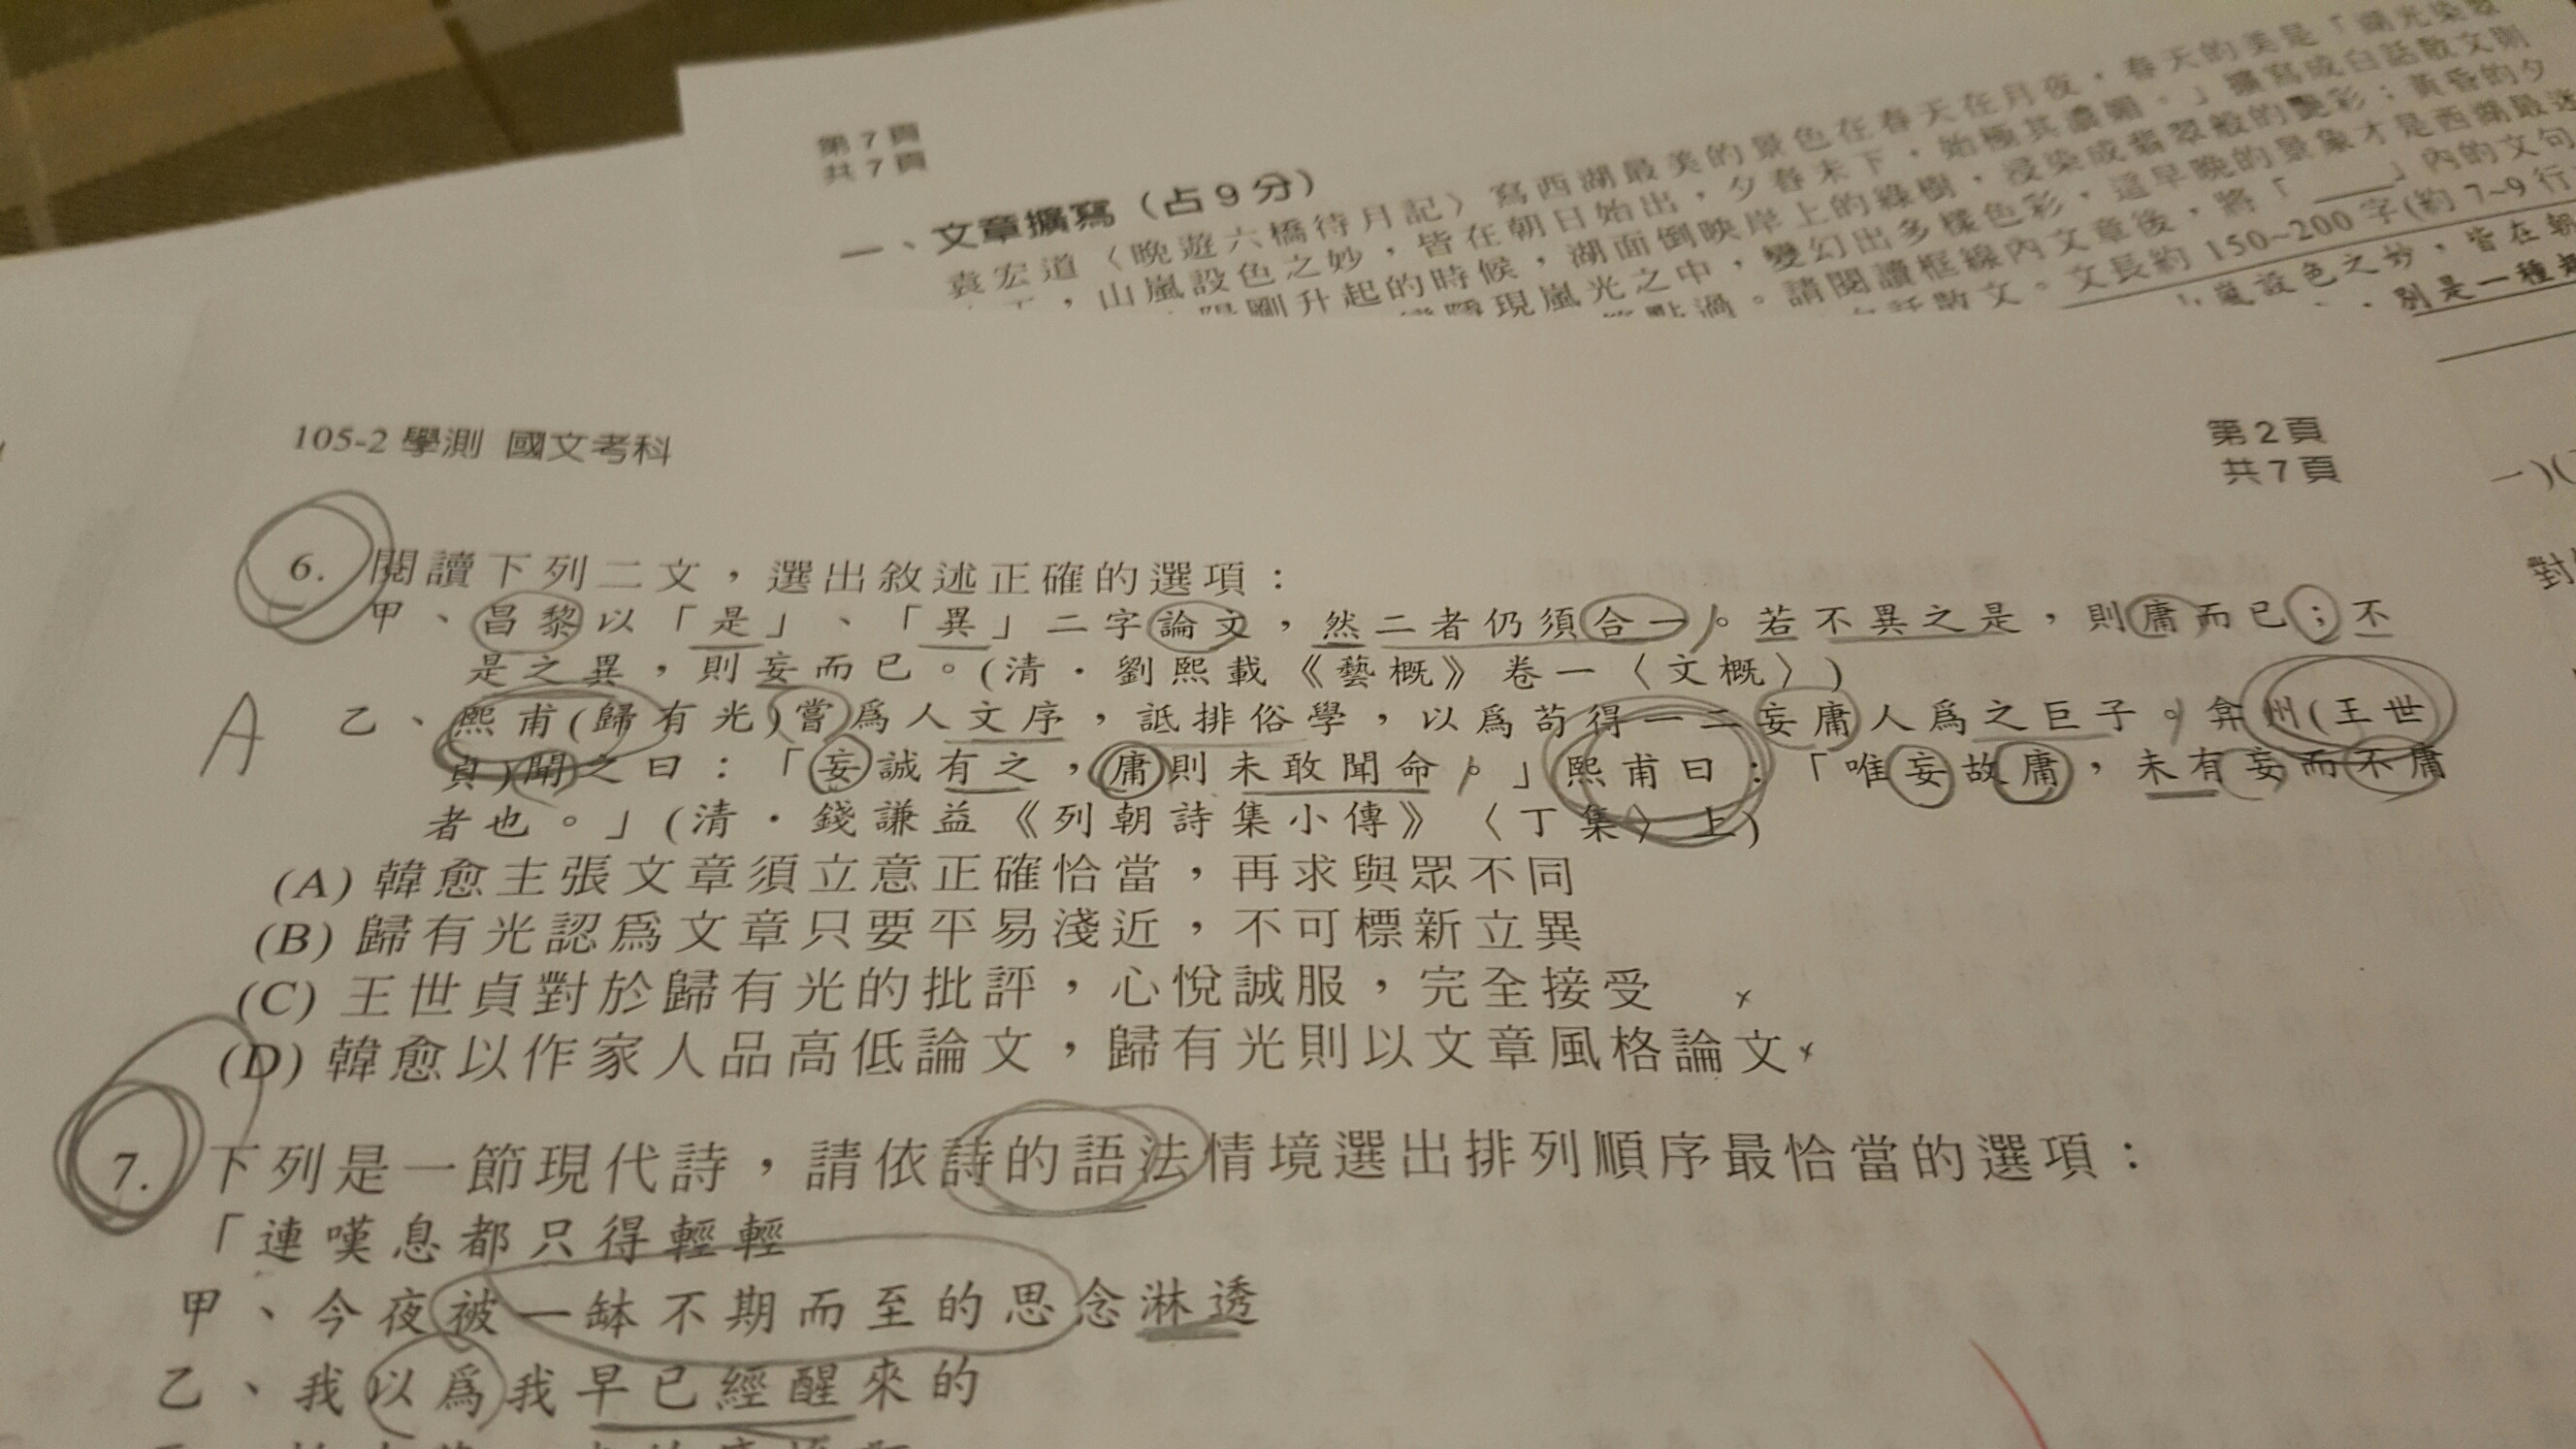 第7頁
共7頁
一、文章擴寫（占9分）
袁宏道〈晚遊六橋待月記〉寫西湖最美的景色在春天在月夜，春天的美是「湖光染翠
，山嵐設色之妙，皆在朝日始出，夕舂未下，始極其濃媚。」擴寫成白話散文則
陽剛升起的時候，湖面倒映岸上的綠樹，浸染成翡翠般的艷彩；黃昏的夕
現嵐光之中，變幻出多樣色彩，這早晚的景象才是西湖最迷
過。請閱讀框線內文章後，將「____」內的文句
話散文。文長約150~200字(約7~9行
嵐設色之妙，皆在朝
別是一種
105-2 學測 國文考科
第2頁
共7頁
6. 閱讀下列二文，選出敘述正確的選項：
甲、昌黎以「是」、「異」二字論文，然二者仍須合一。若不異之是，則庸而已；不
是之異，則妄而已。(清．劉熙載《藝概》卷一〈文概〉)
A
乙、熙甫(歸有光)嘗為人文序，詆排俗學，以為苟得一二妄庸人為之巨子。弇州(王世
貞)聞之曰：「妄誠有之，庸則未敢聞命。」熙甫曰：「唯妄故庸，未有妄而不庸
者也。」(清．錢謙益《列朝詩集小傳》〈丁集〉上)
(A) 韓愈主張文章須立意正確恰當，再求與眾不同
(B) 歸有光認為文章只要平易淺近，不可標新立異
(C) 王世貞對於歸有光的批評，心悅誠服，完全接受 x
(D) 韓愈以作家人品高低論文，歸有光則以文章風格論文 x
7. 下列是一節現代詩，請依詩的語法情境選出排列順序最恰當的選項：
「連嘆息都只得輕輕
甲、今夜被一缽不期而至的思念淋透
乙、我以為我早已經醒來的